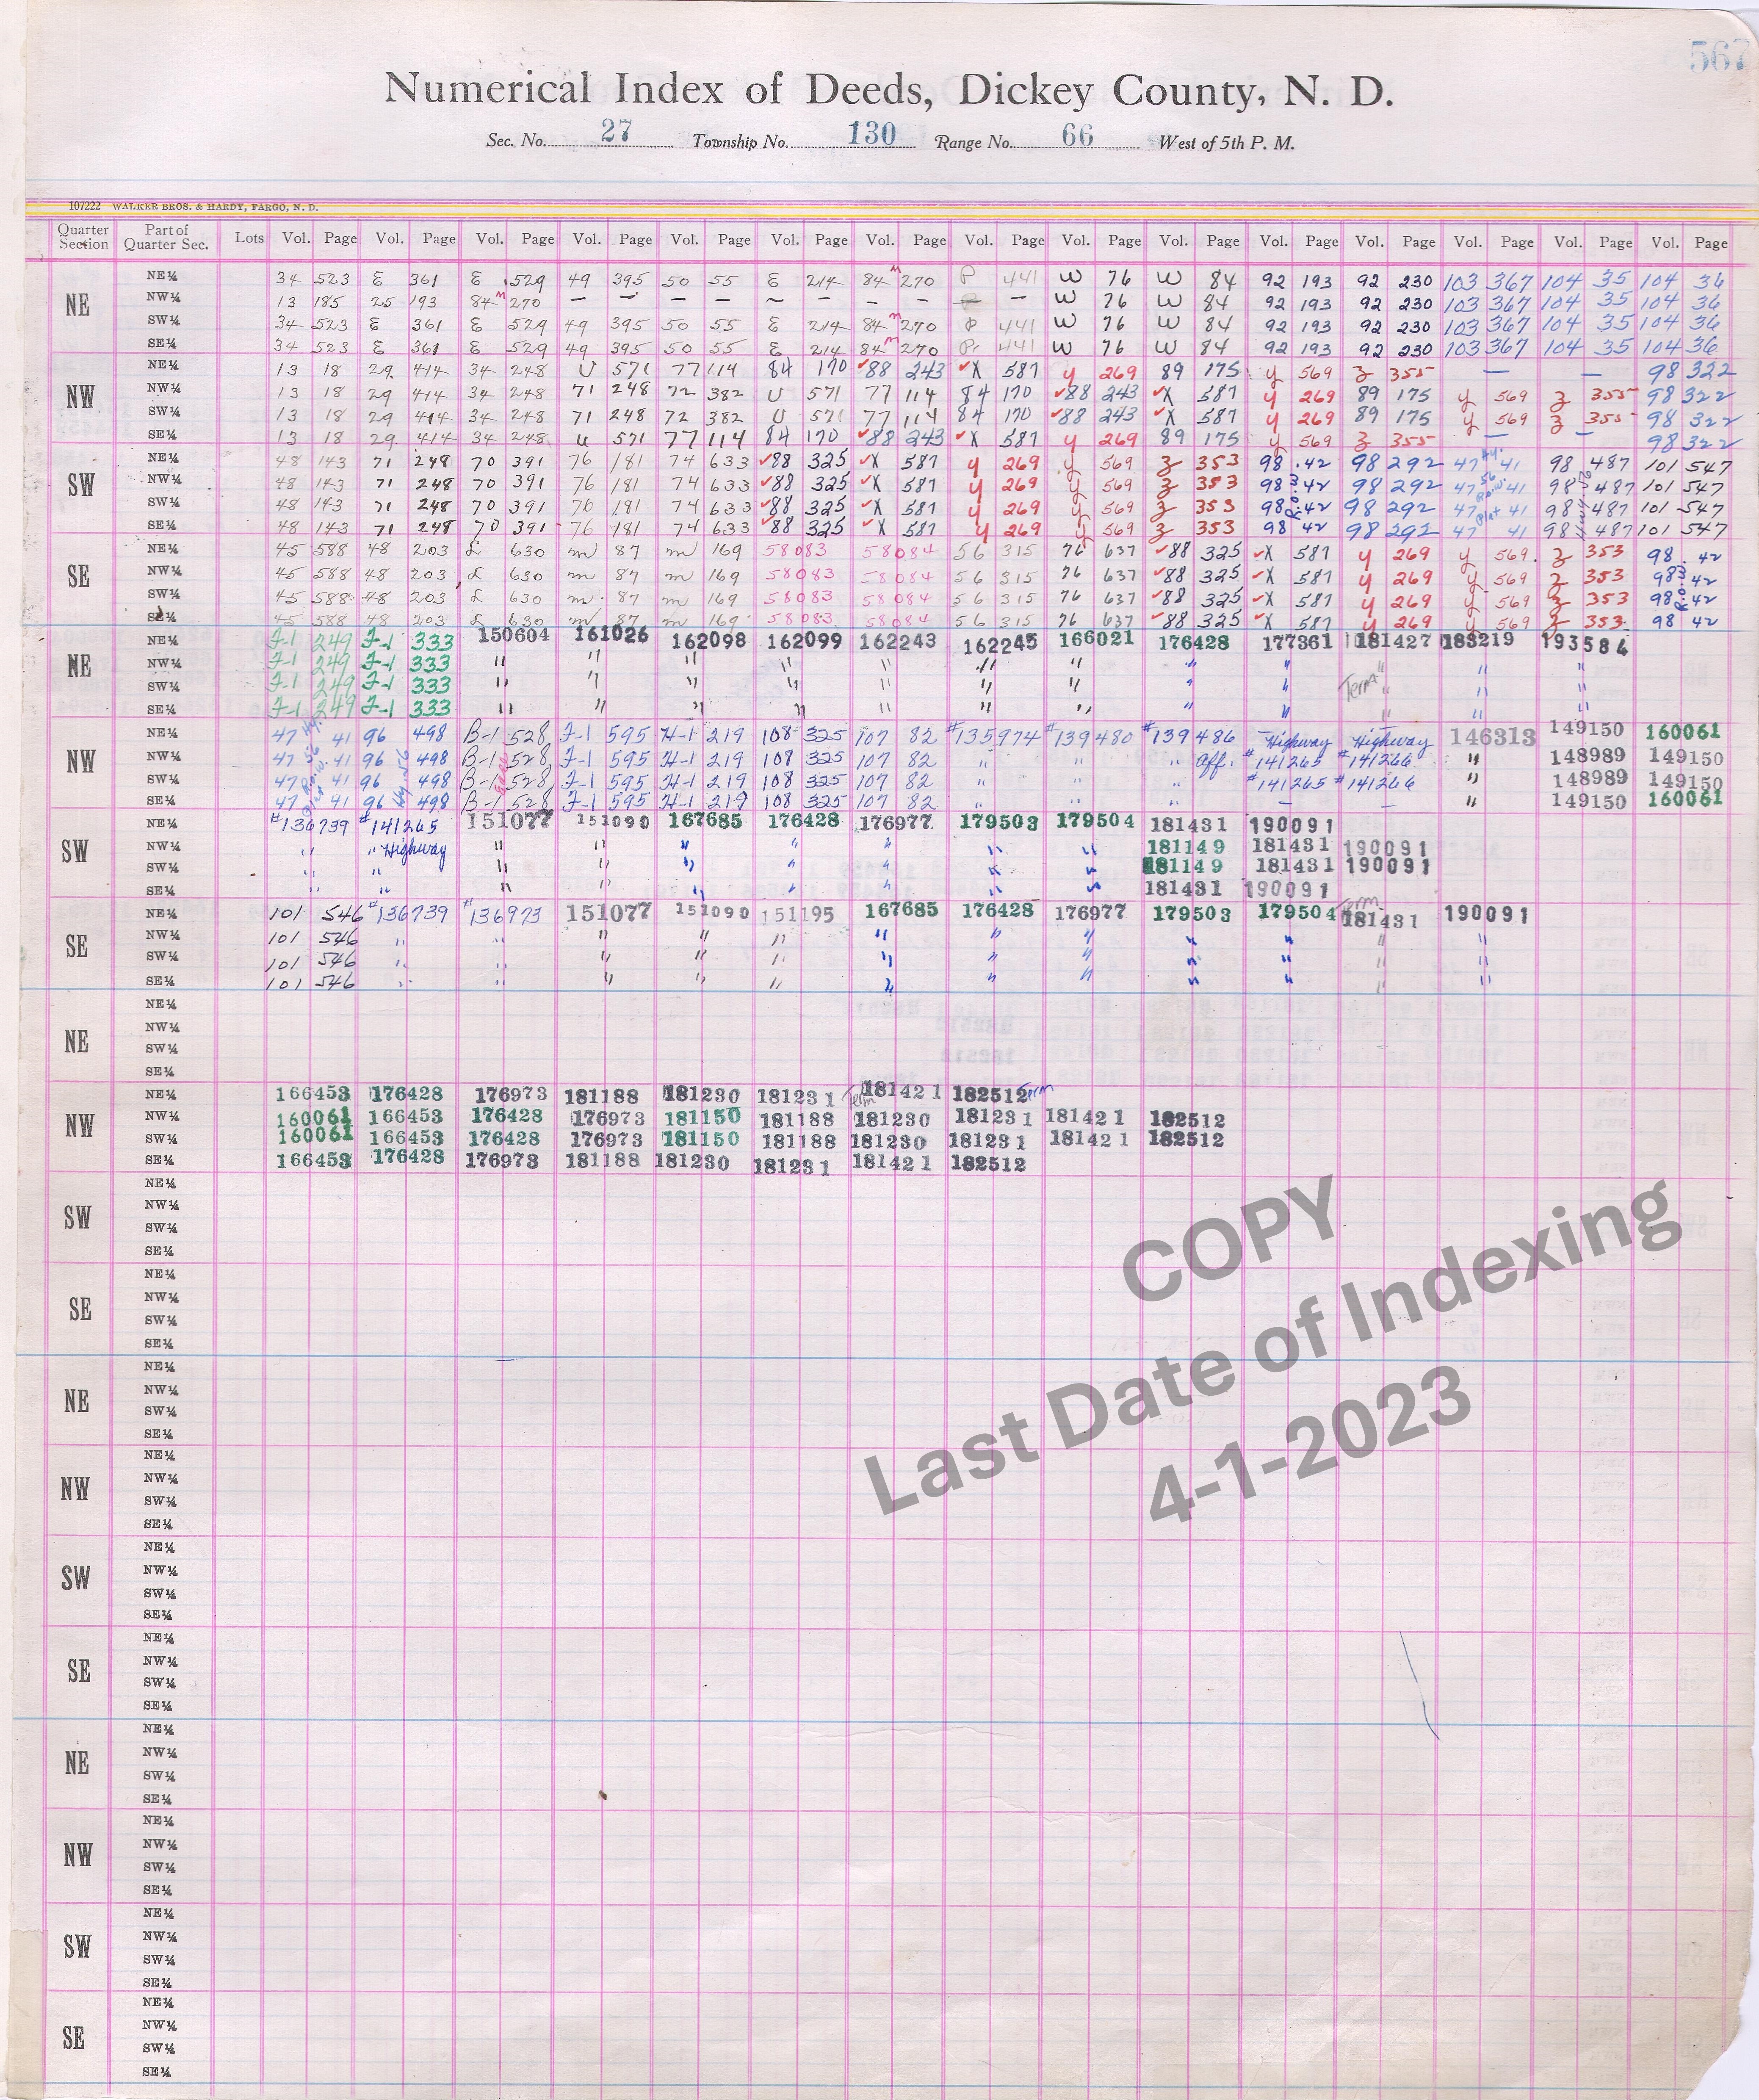 567
Numerical Index of Deeds, Dickey County, N. D.
Sec. No. 27 Township No. 130 Range No. 66 West of 5th P. M.
107222 WALKER BROS. & HARDY, FARGO, N. D.
Quarter Section Part of Quarter Sec. Lots Vol. Page Vol. Page Vol. Page Vol. Page Vol. Page Vol. Page Vol. Page Vol. Page Vol. Page Vol. Page Vol. Page Vol. Page Vol. Page Vol. Page Vol. Page
NE
NE¼ 34 523 E 361 E 529 49 395 50 55 E 214 84 m 270 P 441 W 76 W 84 92 193 92 230 103 367 104 35 104 36
NW¼ 13 185 25 193 84 m 270 — — — — ~ — — — — — W 76 W 84 92 193 92 230 103 367 104 35 104 36
SW¼ 34 523 E 361 E 529 49 395 50 55 E 214 84 m 270 P 441 W 76 W 84 92 193 92 230 103 367 104 35 104 36
SE¼ 34 523 E 361 E 529 49 395 50 55 E 214 84 m 270 P 441 W 76 W 84 92 193 92 230 103 367 104 35 104 36
NW
NE¼ 13 18 29 414 34 248 U 571 77 114 84 170 ✓88 243 ✓X 587 y 269 89 175 y 569 Z 355 — — 98 322
NW¼ 13 18 29 414 34 248 71 248 72 382 U 571 77 114 84 170 ✓88 243 ✓X 587 y 269 89 175 y 569 Z 355 98 322
SW¼ 13 18 29 414 34 248 71 248 72 382 U 571 77 114 84 170 ✓88 243 ✓X 587 y 269 89 175 y 569 Z 355 98 322
SE¼ 13 18 29 414 34 248 U 571 77 114 84 170 ✓88 243 ✓X 587 y 269 89 175 y 569 Z 355 — — 98 322
SW
NE¼ 48 143 71 248 70 391 76 181 74 633 ✓88 325 ✓X 587 y 269 y 569 Z 353 98 42 98 292 47 Hy. 41 98 487 101 547
NW¼ 48 143 71 248 70 391 76 181 74 633 ✓88 325 ✓X 587 y 269 y 569 Z 353 98 42 98 292 47 56 R.o.w. 41 98 487 101 547
SW¼ 48 143 71 248 70 391 76 181 74 633 ✓88 325 ✓X 587 y 269 y 569 Z 353 98 42 98 292 47 Plat 41 98 487 101 547
SE¼ 48 143 71 248 70 391 76 181 74 633 ✓88 325 ✓X 587 y 269 y 569 Z 353 98 42 98 292 47 41 98 487 101 547
SE
NE¼ 45 588 48 203 L 630 m 87 m 169 58083 58084 56 315 76 637 ✓88 325 ✓X 587 y 269 y 569 Z 353 98 42
NW¼ 45 588 48 203 L 630 m 87 m 169 58083 58084 56 315 76 637 ✓88 325 ✓X 587 y 269 y 569 Z 353 98 42
SW¼ 45 588 48 203 L 630 m 87 m 169 58083 58084 56 315 76 637 ✓88 325 ✓X 587 y 269 y 569 Z 353 98 42
SE¼ 45 588 48 203 L 630 m 87 m 169 58083 58084 56 315 76 637 ✓88 325 ✓X 587 y 269 y 569 Z 353 98 42
NE
NE¼ F-1 249 F-1 333 150604 161026 162098 162099 162243 162245 166021 176428 177361 181427 183219 193584
NW¼ F-1 249 F-1 333 " " " " " " " " " " " "
SW¼ F-1 249 F-1 333 " " " " " " " " " Term " " "
SE¼ F-1 249 F-1 333 " " " " " " " " " " " "
NW
NE¼ 47 41 96 498 B-1 528 F-1 595 H-1 219 108 325 107 82 #135974 #139480 #139486 Highway Highway 146313 149150 160061
NW¼ 47 41 96 498 B-1 528 F-1 595 H-1 219 108 325 107 82 " " " Aff. #141265 #141266 " 148989 149150
SW¼ 47 41 96 498 B-1 528 F-1 595 H-1 219 108 325 107 82 " " " #141265 #141266 " 148989 149150
SE¼ 47 41 96 498 B-1 528 F-1 595 H-1 219 108 325 107 82 " " " — — " 149150 160061
SW
NE¼ #136739 #141265 151077 151090 167685 176428 176977 179503 179504 181431 190091
NW¼ " " Highway " " " " " " " 181149 181431 190091
SW¼ " " " " " " " " " 181149 181431 190091
SE¼ " " " " " " " " " 181431 190091
SE
NE¼ 101 546 #136739 #136973 151077 151090 151195 167685 176428 176977 179503 179504 Term 181431 190091
NW¼ 101 546 " " " " " " " " " " " "
SW¼ 101 546 " " " " " " " " " " " "
SE¼ 101 546 " " " " " " " " " " " "
NE
NE¼
NW¼
SW¼
SE¼
NW
NE¼ 166453 176428 176973 181188 181230 181231 Term 181421 182512 Term
NW¼ 160061 166453 176428 176973 181150 181188 181230 181231 181421 182512
SW¼ 160061 166453 176428 176973 181150 181188 181230 181231 181421 182512
SE¼ 166453 176428 176973 181188 181230 181231 181421 182512
SW
NE¼
NW¼
SW¼
SE¼
SE
NE¼
NW¼
SW¼
SE¼
NE
NE¼
NW¼
SW¼
SE¼
NW
NE¼
NW¼
SW¼
SE¼
SW
NE¼
NW¼
SW¼
SE¼
SE
NE¼
NW¼
SW¼
SE¼
NE
NE¼
NW¼
SW¼
SE¼
NW
NE¼
NW¼
SW¼
SE¼
SW
NE¼
NW¼
SW¼
SE¼
SE
NE¼
NW¼
SW¼
SE¼
COPY
Last Date of Indexing
4-1-2023